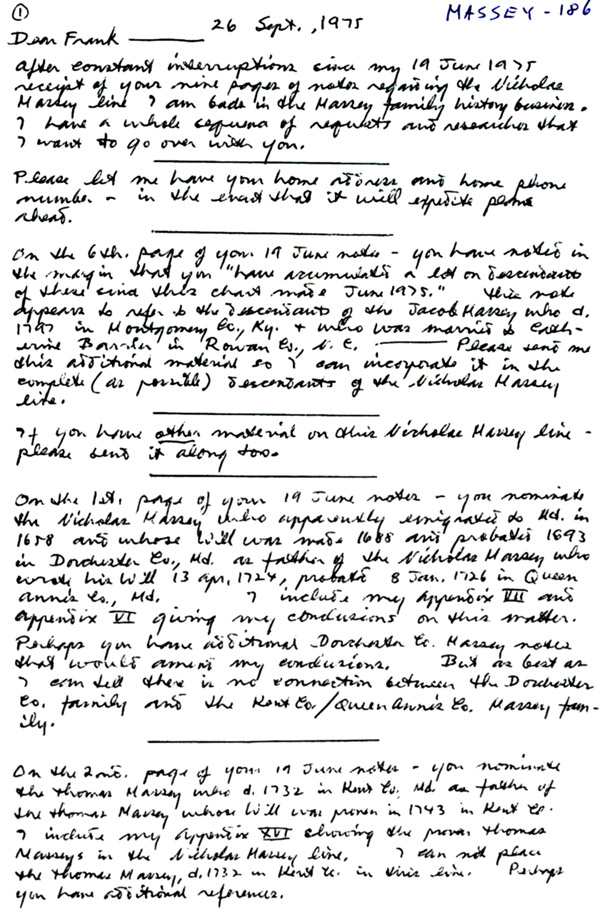 ① 26 Sept., 1975 MASSEY - 186
Dear Frank ———
After constant interruptions since my 19 June 1975
receipt of your nine pages of notes regarding the Nicholas
Massey line I am back in the Massey family history business.
I have a whole sequence of requests and researches that
I want to go over with you.
Please let me have your home address and home phone
number - in the event that it will expedite
ahead.
On the 6th. page of your 19 June notes - you have noted in
the margin that you "have accumulated a lot on descendants
of these since this chart made June 1975." This note
appears to refer to the descendants of the Jacob Massey who d.
1797 in Montgomery Co., Ky. + who was married to Cath-
erine Barrier in Rowan Co., N.C. ——— Please send me
this additional material so I can incorporate it in the
complete (as possible) descendants of the Nicholas Massey
line.
If you have other material on this Nicholas Massey line -
please send it along too.
On the 1st. page of your 19 June notes - you nominate
the Nicholas Massey who apparently emigrated to Md. in
1658 and whose Will was made 1688 and probated 1693
in Dorchester Co., Md. as father of the Nicholas Massey who
wrote his Will 13 Apr, 1724, probated 8 Jan. 1726 in Queen
Annes Co., Md. I include my Appendix VII and
Appendix VI giving my conclusions on this matter.
Perhaps you have additional Dorchester Co. Massey notes
that would amend my conclusions. But as best as
I can tell there is no connection between the Dorchester
Co. family and the Kent Co./Queen Annes Co. Massey fam-
ily.
On the 2nd. page of your 19 June notes - you nominate
the Thomas Massey who d. 1732 in Kent Co., Md. as father of
the Thomas Massey whose Will was proven in 1743 in Kent Co.
I include my Appendix XVI showing the proven Thomas
Masseys in the Nicholas Massey line. I can not place
the Thomas Massey, d. 1732 in Kent Co. in this line. Perhaps
you have additional references.